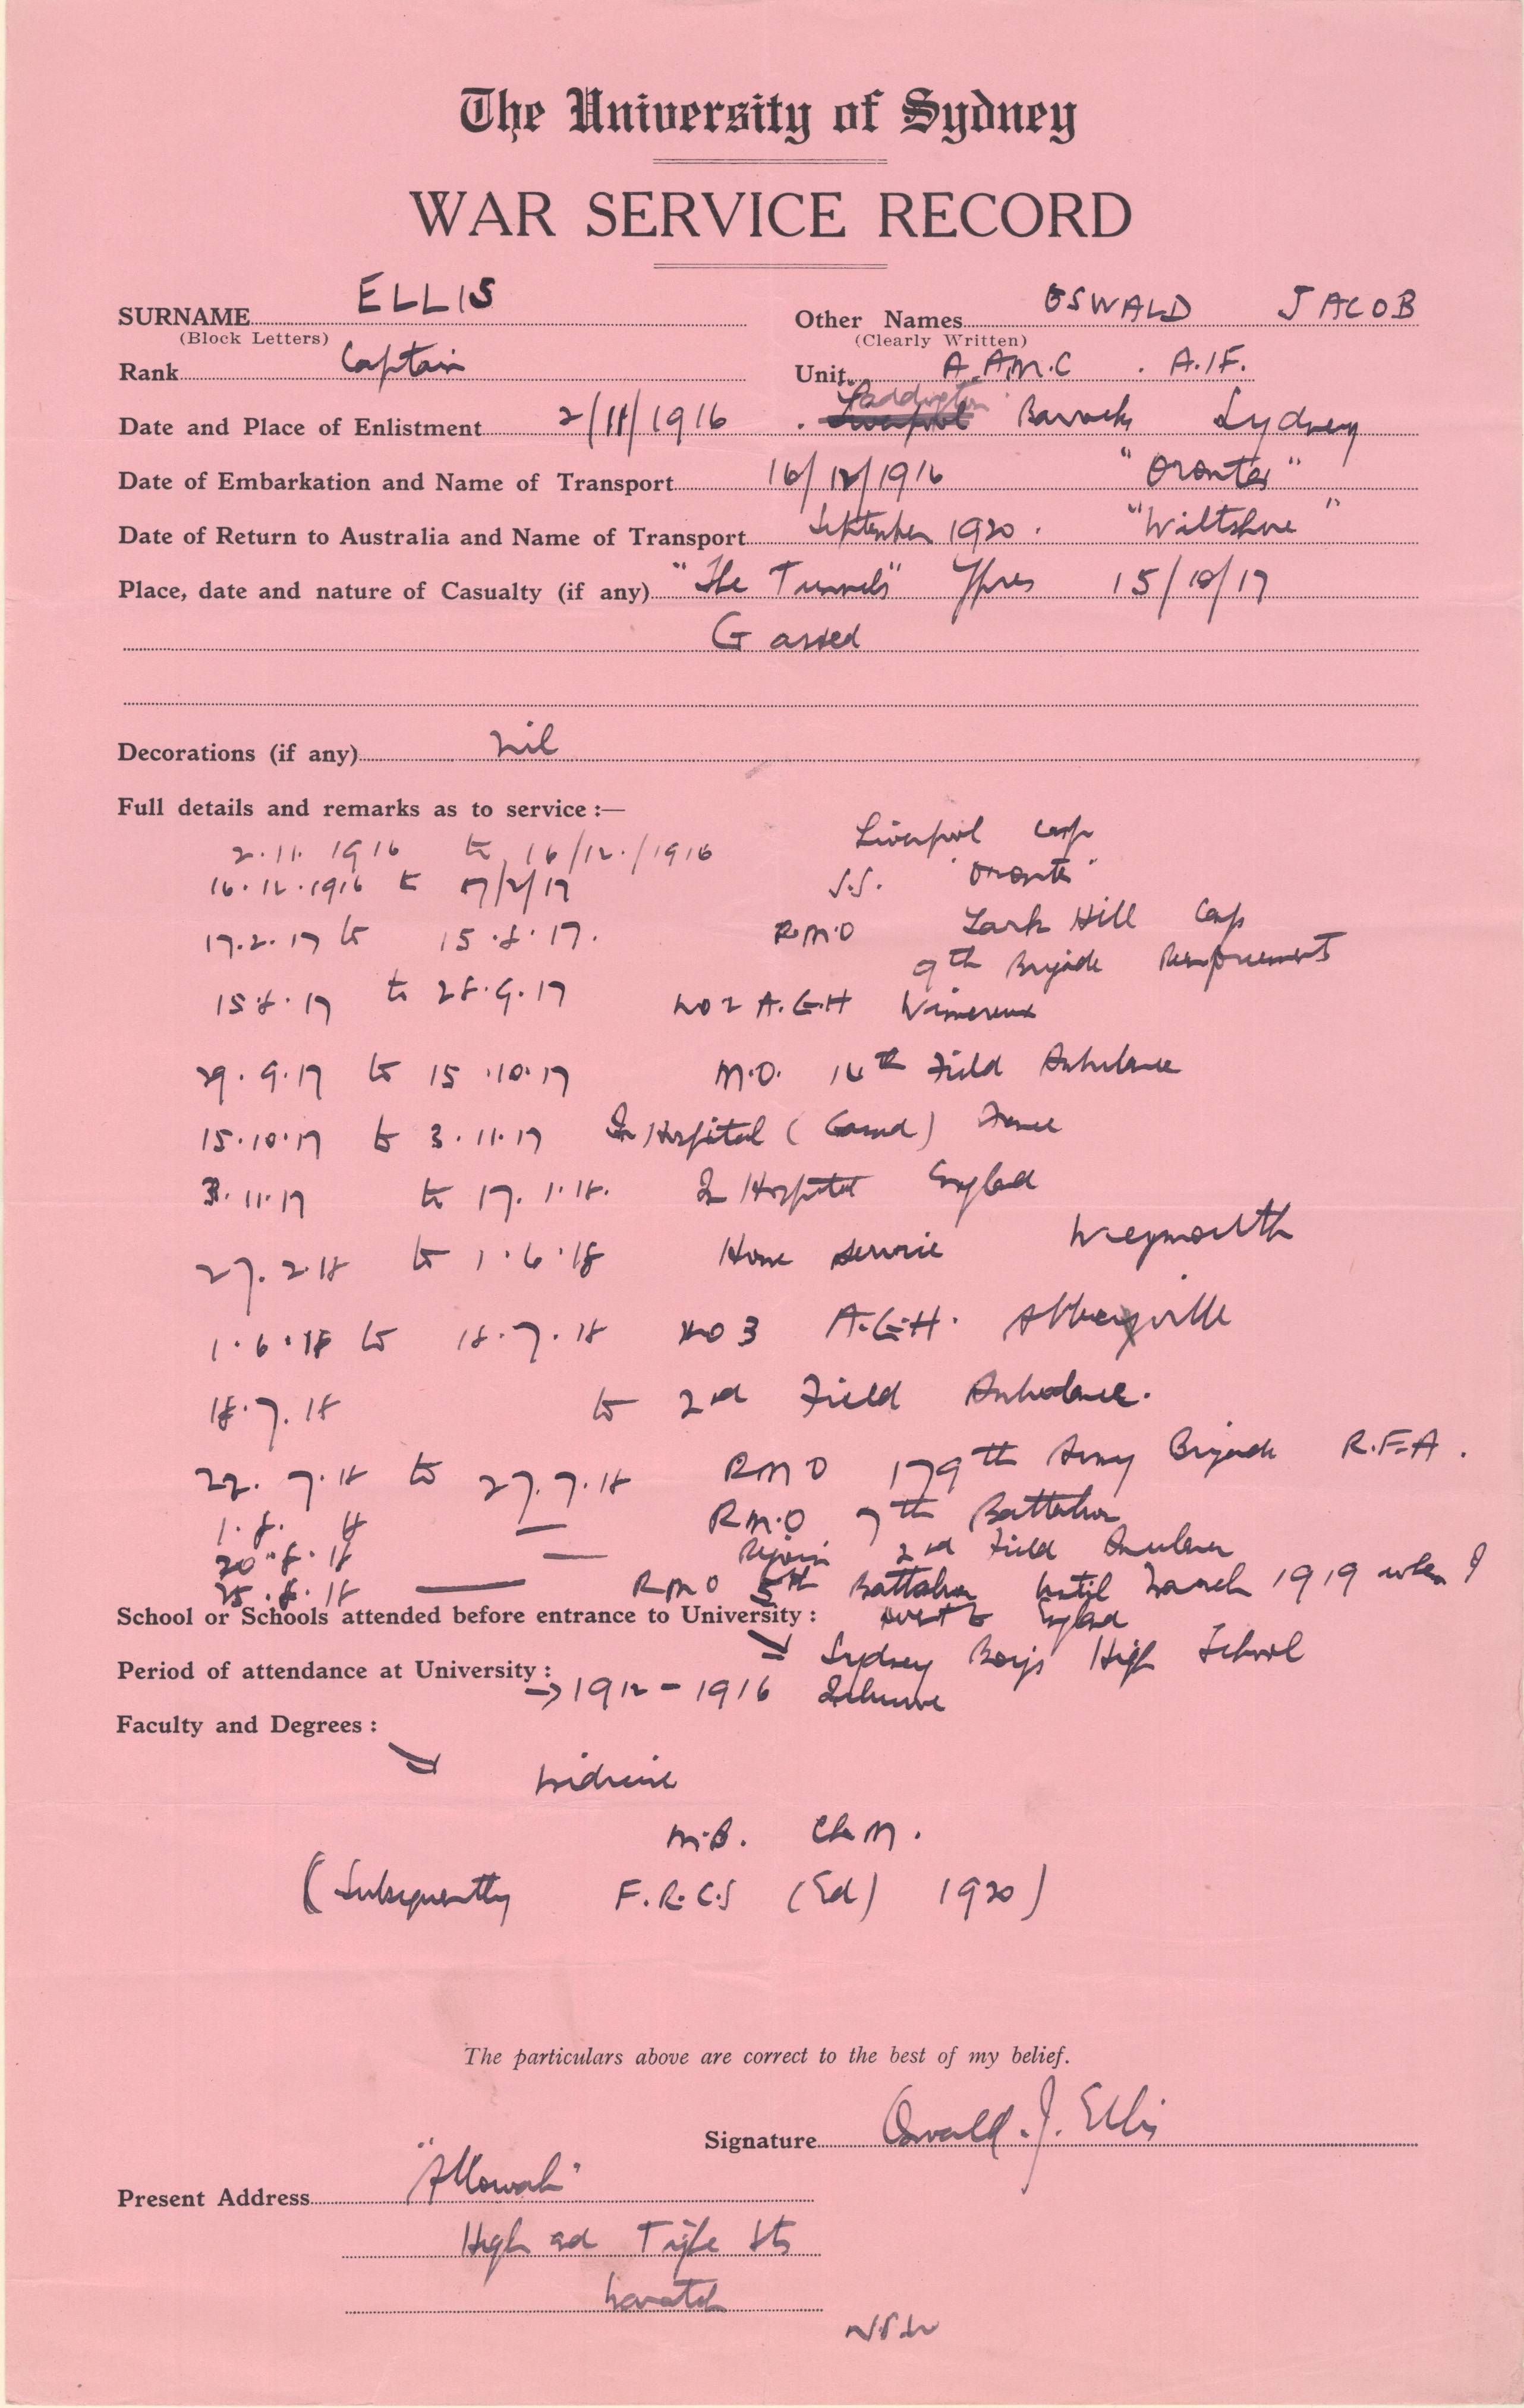 The University of Sydney
WAR SERVICE RECORD
SURNAME ELLIS Other Names OSWALD JACOB
(Block Letters) (Clearly Written)
Rank Captain Unit A.A.M.C. A.I.F.
Date and Place of Enlistment 2/11/1916 . Paddington Barracks Sydney
Date of Embarkation and Name of Transport 16/12/1916 "Orontes"
Date of Return to Australia and Name of Transport September 1920. "Wiltshire"
Place, date and nature of Casualty (if any) "The Tunnels" Ypres 15/10/17
Gassed
Decorations (if any) Nil
Full details and remarks as to service :—
2.11.1916 to 16/12/1916 Liverpool Camp
16.12.1916 to 17/2/17 S.S. "Orontes"
17.2.17 to 15.8.17. R.M.O Lark Hill Camp
9th Brigade Reinforcements
15.8.17 to 28.9.17 No 2 A.G.H Wimereux
29.9.17 to 15.10.17 M.O. 14th Field Ambulance
15.10.17 to 3.11.17 In Hospital (Gassed) France
3.11.17 to 17.1.18. In Hospital England
27.2.18 to 1.6.18 Home service Weymouth
1.6.18 to 18.7.18 No 3 A.G.H. Abbeyville
18.7.18 to 2nd Field Ambulance.
22.7.18 to 27.7.18 RMO 179th Army Brigade R.F.A.
1.8.18 — R.M.O 7th Battalion
20.8.18 — Rejoin 2nd Field Ambulance
25.8.18 — RMO 5th Battalion until March 1919 when I
went to England
School or Schools attended before entrance to University :
Sydney Boys High School
Period of attendance at University :
→ 1912 - 1916 Inclusive
Faculty and Degrees :
Medicine
M.B. Ch M.
(Subsequently F.R.C.S (Ed) 1920)
The particulars above are correct to the best of my belief.
Signature Oswald. J. Ellis
Present Address "Allowah"
High and Tighe Sts
Waratah
NSW